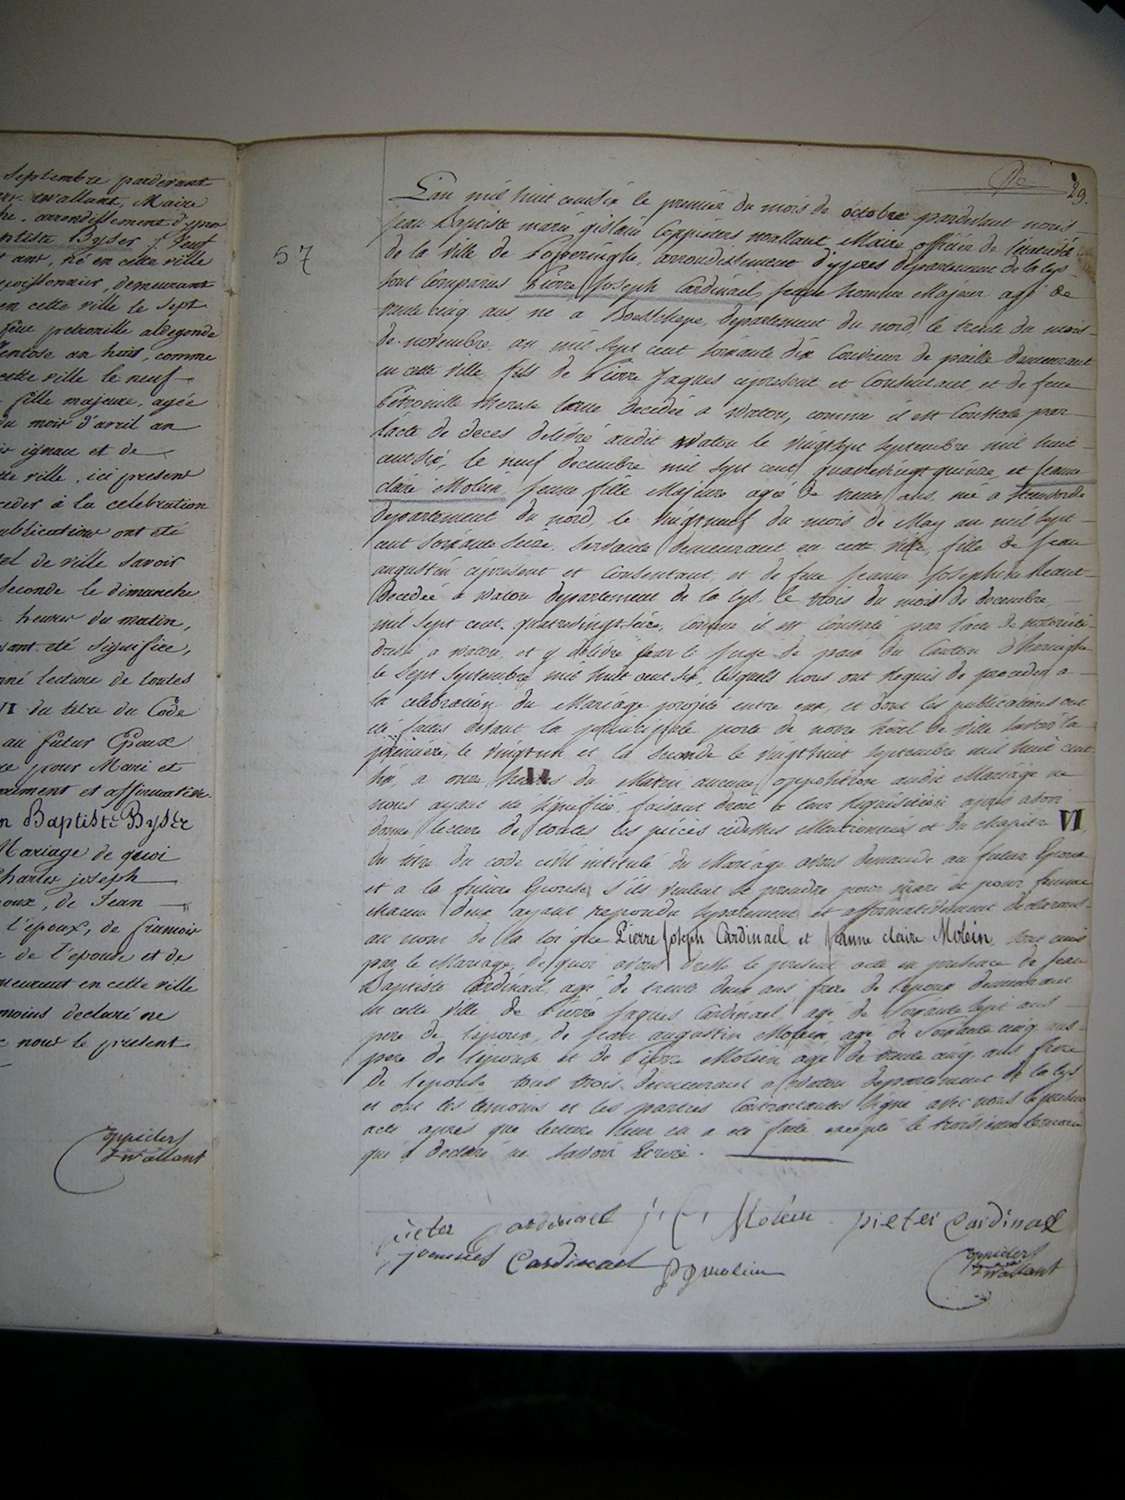 septembre pardevant
wallant, Maire
arrondissement d'ypres
Baptiste Byser, Jeune
ans, né en cette ville
poissonnier, demeurant
en cette ville le sept
feue petronille aldegonde
Ventose an huit, comme
cette ville le neuf
fille majeure, agée
du mois d'avril an
ignace et de
ville, ici present
ceder à la celebration
publications ont été
hotel de ville savoir
seconde le dimanche
heures du matin,
ayant été signifiée,
donné lecture de toutes
VI du titre du Code
au futur Epoux
pour Mari et
et affirmative
Baptiste Byser
Mariage de quoi
Charles joseph
Epoux, de Jean
l'époux, de francois
de l'épouse et de
demeurent en cette ville
témoins declaré ne
nous le present
Coppieters
t'wallant
29.
57
L'an mil huit cent six le premier du mois de octobre pardevant nous
Jean Baptiste marie gislain Coppieters twallant Maire officier de l'état civil
de la ville de Poperinghe, arrondissement d'ypres departement de la lys
sont Comparus Pierre Joseph Cardinael, jeune homme Majeur agé de
trente cinq ans né a Boeschepe, departement du nord, le trente du mois
de novembre an mil sept cent soixante dix Couvreur de paille demeurant
en cette ville fils de Pierre Jaques cipresent et Consentant et de feue
Petronille therese decedée a Watou, comme il est Constaté par
l'acte de deces delivré audit Watou le vingt sept septembre mil huit
cent six, le neuf decembre mil sept cent quatrevingt quinze, et Jeanne
claire Molein Jeune fille Majeure agé de trente ans, née a
departement du nord, le vingt neuf du mois de May an mil sept
cent soixante seize, servante demeurant en cette ville, fille de Jean
augustin cipresent et Consentant, et de feue Jeanne Josephine
Decedée a Watou departement de la lys le trois du mois de decembre
mil sept cent quatrevingt seize, comme il est constaté par l'acte de notoriété
donné a watou, et y delivré par le Juge de paix du Canton
le sept septembre mil huit cent six, lesquels nous ont requis de proceder a
la celebration du Mariage projeté entre eux, et dont les publications ont
été faites devant la principale porte de notre hôtel de ville savoir la
premiere, le vingt un et la seconde le vingt huit septembre mil huit cent
six, a onze heures du Matin aucune opposition audit Mariage ne
nous ayant été signifiée, faisant droit a leur requisition, apres avoir
donné lecture de toutes les pièces cidessus Mentionnées et du chapitre VI
du titre du code civil intitulé du Mariage avons demandé au futur Epoux
et a la future Epouse, s'ils veulent se prendre pour mari et pour femme
chacun deux ayant repondu separement et affirmativement declarons
au nom de la loi que Pierre Joseph Cardinael et Jeanne claire Molein, sont unis
par le Mariage, de quoi avons dressé le present acte en presence de Jean
Baptiste Cardinael, agé de trente deux ans frere de l'epoux demeurant
en cette ville de Pierre Jaques Cardinael, agé de soixante sept ans
pere de l'epoux, de Jean augustin Molein, agé de soixante cinq ans
pere de l'epouse et de Pierre Molein, agé de trente cinq ans frere
de l'epouse tous trois demeurant a Watou departement de la lys
et ont les temoins et les parties Contractantes signé avec nous le present
acte apres que lecture leur en a été faite excepté le troisieme temoin
qui a declaré ne savoir Ecrire.
pieter Cardinael j: C: Molein pieter Cardinael
joannes Cardinael Molein
Coppieters
t'wallant